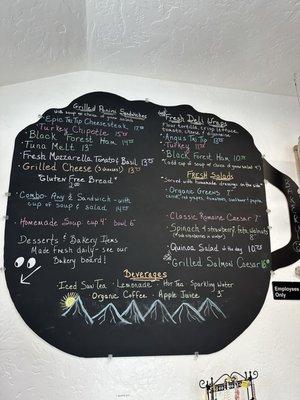 Grilled Panini Sandwiches
with soup or choice of green salads
Epic Tri Tip Cheesesteak
Turkey Chipotle
Black Forest Ham 14
Tuna Melt 13
Fresh Mozzarella Tomato & Basil 13
Grilled Cheese (3 cheeses) 13
Gluten Free Bread
2.00
Combo- Any ½ Sandwich - with
cup of soup & salad 14
Homemade Soup cup 4 bowl 6
Desserts & Bakery Items
Made fresh daily - see our
Bakery board!
Fresh Deli Wraps
Flour tortilla, crisp lettuce,
tomato, cheese &
Angus Tri Tip 12
Turkey 11
Black Forest Ham 10
(add cup of soup or choice of green salad)
Fresh Salads
Served with homemade dressings on the side
Organic Greens 7
Classic Romaine Caesar 7
Spinach & strawberry, feta, walnuts
Quinoa Salad of the day 10
Grilled Salmon Caesar
Beverages
Iced Sun Tea Lemonade Hot Tea Sparkling Water
Organic Coffee Apple Juice
Employees
Only